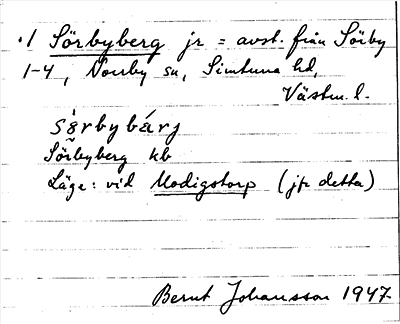 ·1 Sörbyberg jr = avst. från Sörby
1-4, Norrby sn, Simtuna hd,
Västm. l.
sörbybárj
Sörbyberg kb
Läge: vid Modigstorp (jfr detta)
Bernt Johansson 1947